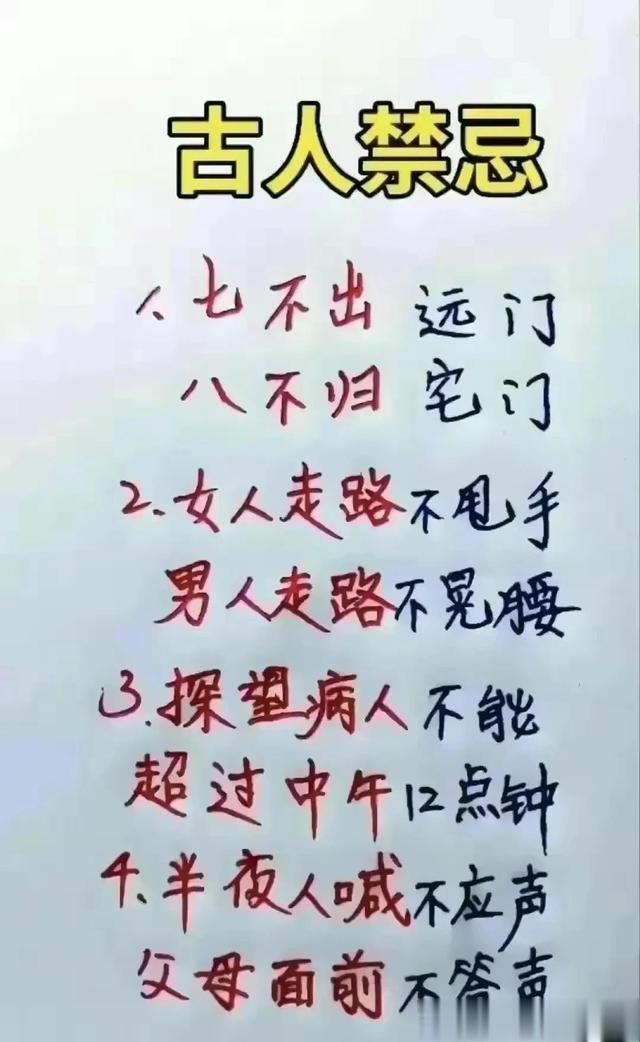 古人禁忌
1、七不出远门
八不归宅门
2、女人走路不甩手
男人走路不晃腰
3、探望病人不能
超过中午12点钟
4、半夜人喊不应声
父母面前不答声